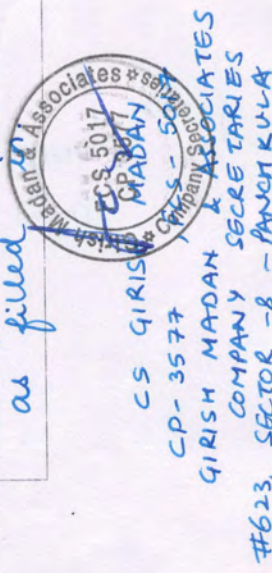 as filled in.
Girish Madan & Associates
Company Secretaries
FCS 5017
CP-3577
CS GIRISH MADAN
FCS - 5017
CP- 3577
GIRISH MADAN & ASSOCIATES
COMPANY SECRETARIES
#623, SECTOR -8 - PANCHKULA